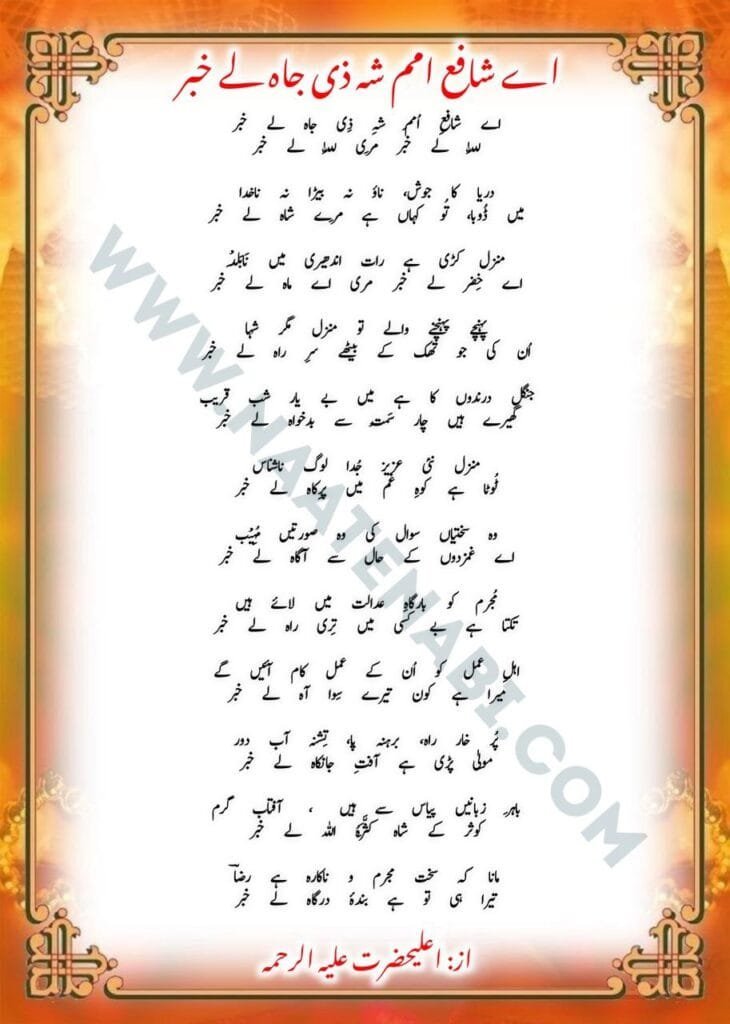 اے شافع امم شہ ذی جاہ لے خبر
اے شافعِ اُمم شہِ ذِی جاہ لے خبر
للہ لے خبر مری للہ لے خبر
دریا کا جوش، ناؤ نہ بیڑا نہ ناخدا
میں ڈُوبا، تُو کہاں ہے مرے شاہ لے خبر
منزل کڑی ہے رات اندھیری میں نَابَلَدْ
اے خِضر لے خبر مری اے ماہ لے خبر
پہنچے پہنچنے والے تو منزل مگر شہا
اُن کی جو تھک کے بیٹھے سرِ راہ لے خبر
جنگل درندوں کا ہے میں بے یار شب قریب
گھیرے ہیں چار سَمت سے بدخواہ لے خبر
منزل نئی عزیز جُدا لوگ ناشناس
ٹُوٹا ہے کوہِ غم میں پرِکاہ لے خبر
وہ سختیاں سوال کی وہ صورتیں مُہِیْب
اے غمزدوں کے حال سے آگاہ لے خبر
مُجرم کو بارگاہِ عدالت میں لائے ہیں
تکتا ہے بے کسی میں تِری راہ لے خبر
اہلِ عمل کو اُن کے عمل کام آئیں گے
میرا ہے کون تیرے سِوا آہ لے خبر
پُر خار راہ، برہنہ پا، تِشنہ آب دور
مولیٰ پڑی ہے آفتِ جانکاہ لے خبر
باہر زبانیں پیاس سے ہیں ، آفتاب گرم
کوثر کے شاہ کَثَّرَہُ اللہ لے خبر
مانا کہ سخت مجرم و ناکارہ ہے رضاؔ
تیرا ہی تو ہے بندۂ درگاہ لے خبر
از: اعلیحضرت علیہ الرحمہ
WWW.NAATENABI.COM